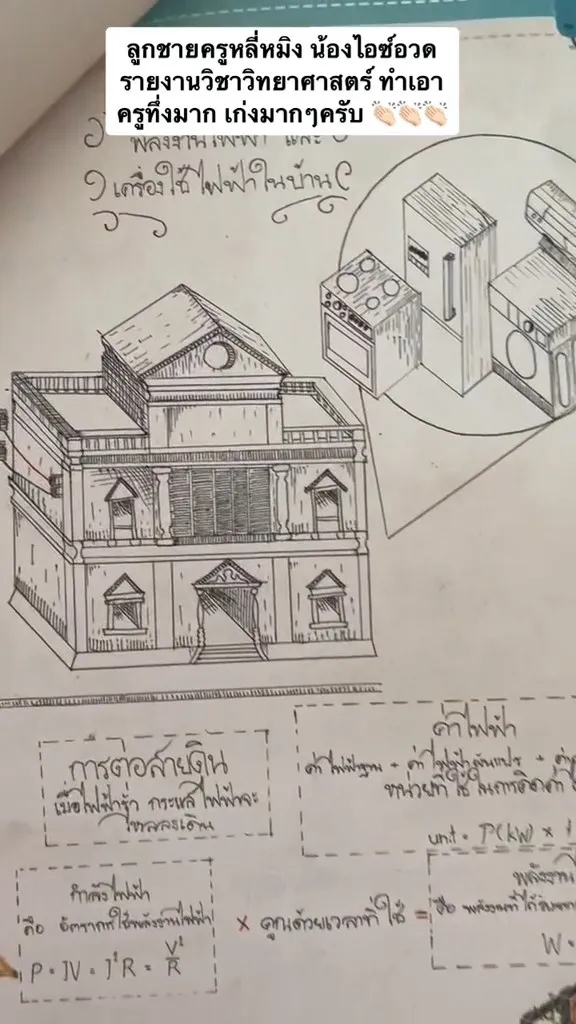 ลูกชายครูหลี่หมิง น้องไอซ์อวด
รายงานวิชาวิทยาศาสตร์ ทำเอา
ครูทึ่งมาก เก่งมากๆครับ 👏🏻👏🏻👏🏻
พลังงานไฟฟ้า และ
เครื่องใช้ไฟฟ้าในบ้าน
การต่อสายดิน
เมื่อไฟฟ้ารั่ว กระแสไฟฟ้าจะ
ไหลลงดิน
ค่าไฟฟ้า
ค่าไฟฟ้าฐาน + ค่าไฟฟ้าผันแปร +
หน่วยที่ใช้ในการคิดค่า
unit = P(kW) ×
กำลังไฟฟ้า
คือ อัตราการใช้พลังงานไฟฟ้า
P = IV = I²R = V²/R
× คูณด้วยเวลาที่ใช้ =
พลังงาน
คือ พลังงานที่ได้
W =